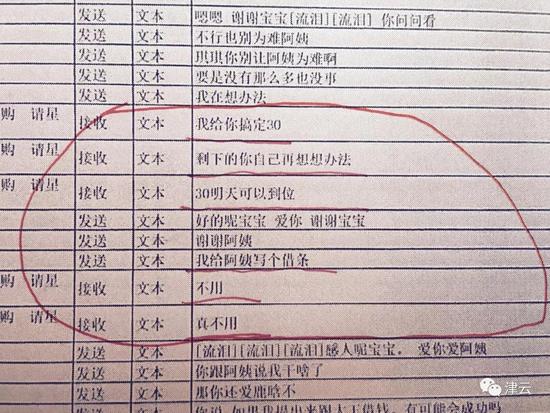 发送 文本 嗯嗯 谢谢宝宝[流泪][流泪] 你问问看
发送 文本 不行也别为难阿姨
发送 文本 琪琪你别让阿姨为难啊
发送 文本 要是没有那么多也没事
发送 文本 我在想办法
购 请星 接收 文本 我给你搞定30
购 请星 接收 文本 剩下的你自己再想想办法
购 请星 接收 文本 30明天可以到位
发送 文本 好的呢宝宝 爱你 谢谢宝宝
发送 文本 谢谢阿姨
发送 文本 我给阿姨写个借条
购 请星 接收 文本 不用
购 请星 接收 文本 真不用
发送 文本 [流泪][流泪][流泪]感人呢宝宝。 爱你爱阿姨
发送 文本 你跟阿姨说我干啥了
发送 文本 那你还爱鹿晗不
发送 文本 你说 如果我提出来跟大王借钱，有可能会成功吗
津云